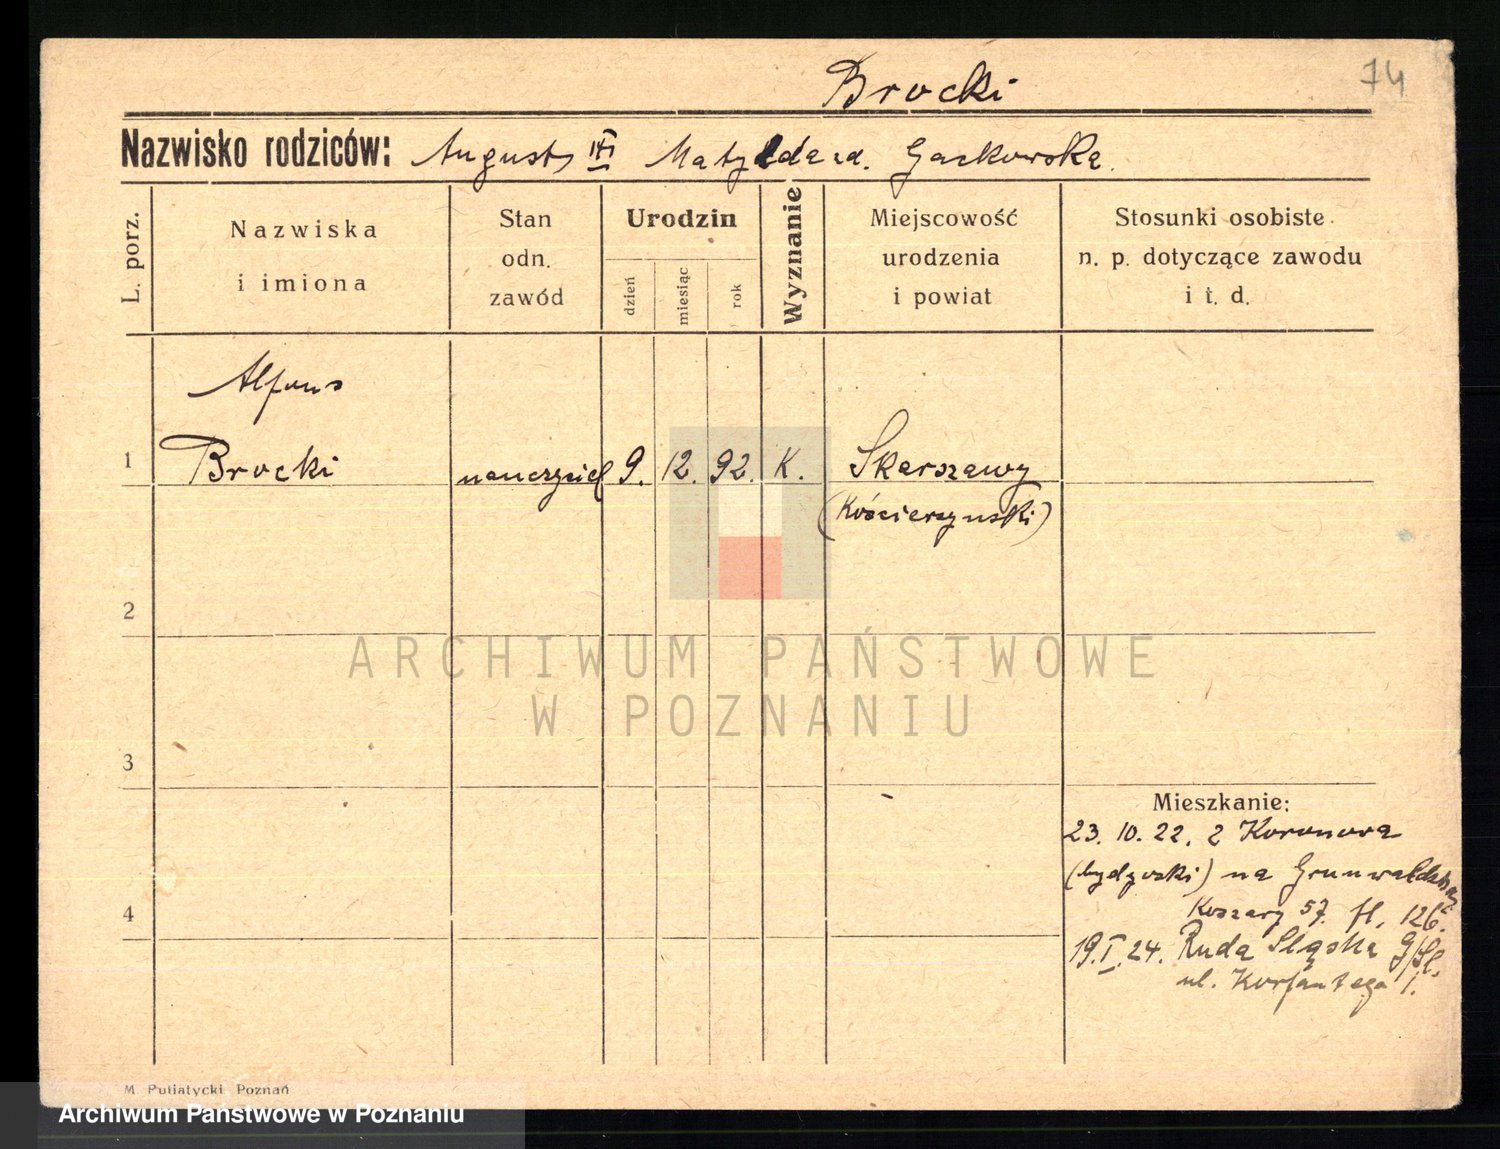 Brocki
74
Nazwisko rodziców: August, Matylda zd. Gackowska.
L. porz.
Nazwiska
i imiona
Stan
odn.
zawód
Urodzin
dzień
miesiąc
rok
Wyznanie
Miejscowość
urodzenia
i powiat
Stosunki osobiste
n. p. dotyczące zawodu
i t. d.
Alfons
1 Brocki nauczyciel 9. 12. 92. K. Skarszewy
(Kościerzynski)
2
ARCHIWUM PAŃSTWOWE
W POZNANIU
3
Mieszkanie:
23. 10. 22. z Koronowa
(bydgoski) na Grunwaldzka
Koszary 57. fl. 126.
4
19. I. 24. Ruda Sląska G/Sl.
ul. Korfantego 1.
M. Putiatycki, Poznań
Archiwum Państwowe w Poznaniu